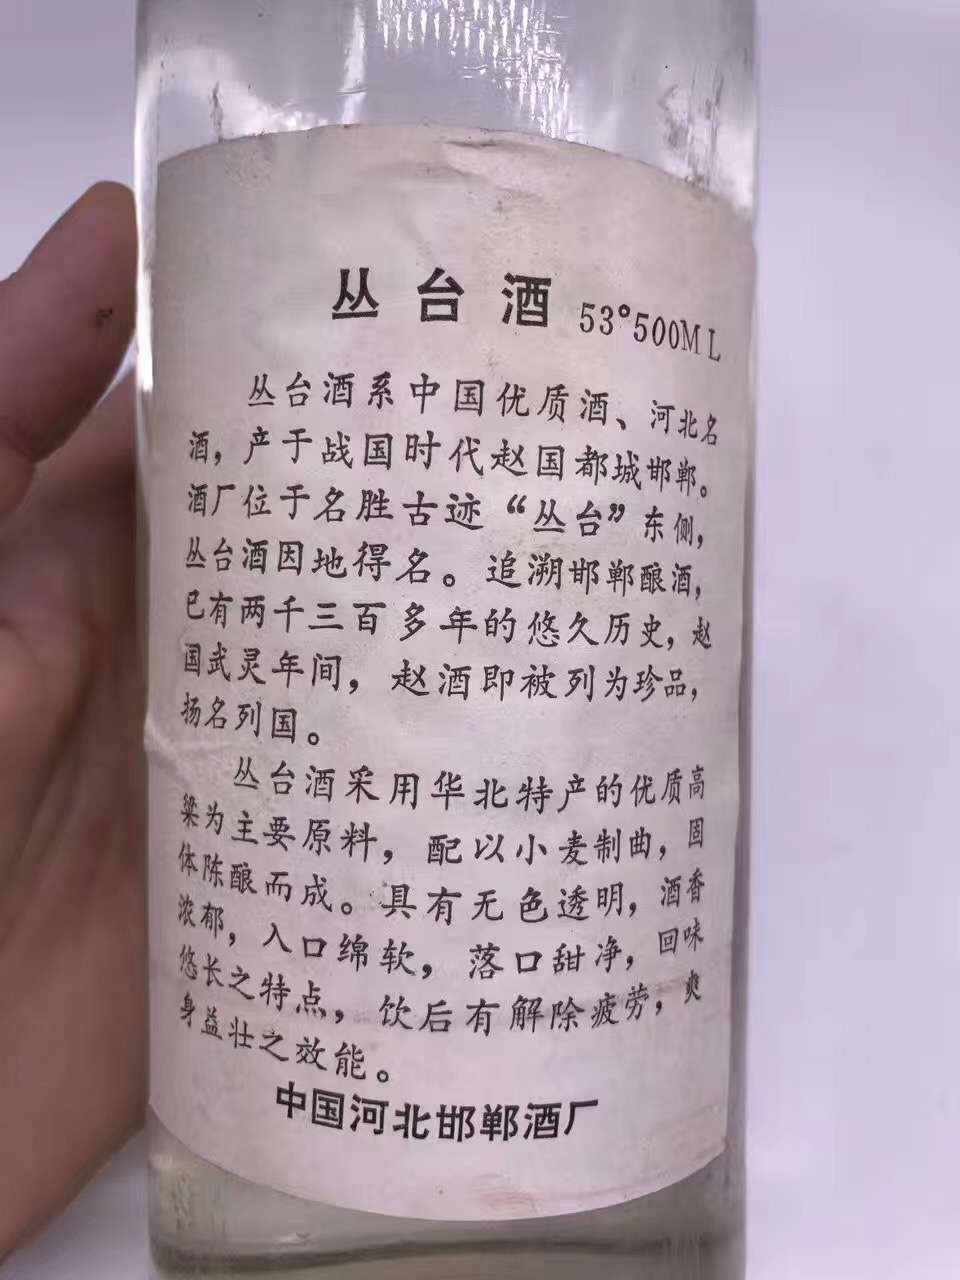 丛台酒 53°500ML
丛台酒系中国优质酒、河北名
酒，产于战国时代赵国都城邯郸。
酒厂位于名胜古迹“丛台”东侧，
丛台酒因地得名。追溯邯郸酿酒，
已有两千三百多年的悠久历史，赵
国武灵年间，赵酒即被列为珍品，
扬名列国。
丛台酒采用华北特产的优质高
粱为主要原料，配以小麦制曲，固
体陈酿而成。具有无色透明，酒香
浓郁，入口绵软，落口甜净，回味
悠长之特点，饮后有解除疲劳，爽
身益壮之效能。
中国河北邯郸酒厂